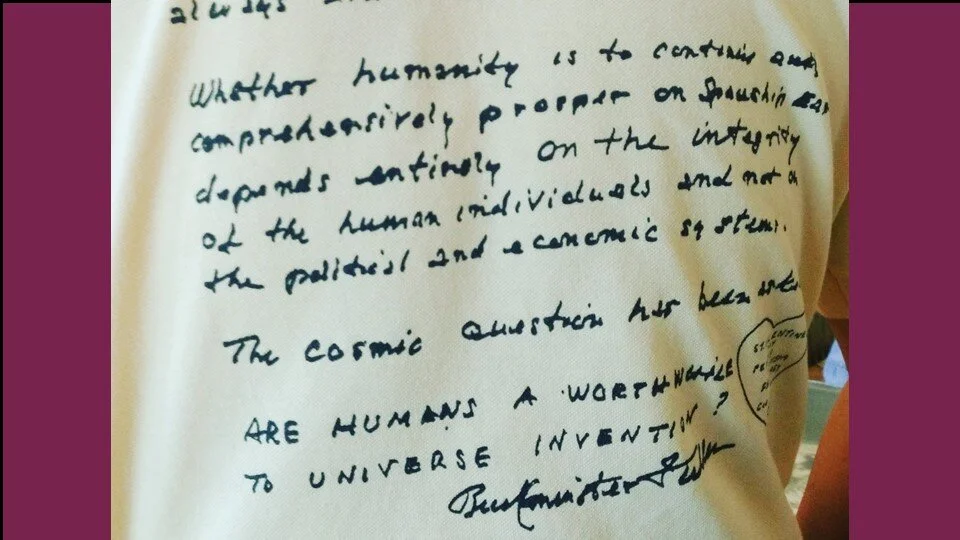 always
Whether humanity is to continue and
comprehensively prosper on Spaceship Ear
depends entirely on the integrity
of the human individuals and not on
the political and economic systems.
The cosmic question has been asked
ARE HUMANS A WORTHWHILE
TO UNIVERSE INVENTION?
Buckminster Fuller